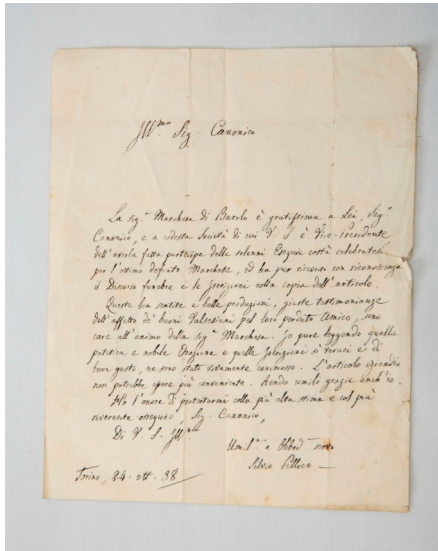 Ill.mo Sig. Canonico
La Sig.ra Marchesa di Barolo è gratissima a Lei, Sig.r
Canonico, e a codesta Società di cui V. S. è Vice-presidente
dell'averla fatta partecipe delle solenni Esequie costà celebratesi
per l'ottimo defunto Marchese, ed ha pur ricevuto con riconoscenza
il Discorso funebre e le Iscrizioni colla copia dell'articolo.
Queste sentite e belle produzioni, giuste testimonianze
dell'affetto de' buoni Valsesiani pel loro perduto Amico, sono
care all'animo della Sig.ra Marchesa. Io pure leggendo quella
patetica e nobile Orazione e quelle Iscrizioni sì veraci e di
buon gusto, ne sono stato vivamente commosso. L'articolo
non potrebbe essere più conveniente. Rendo umili grazie anch'io.
Ho l'onore di protestarmi colla più alta stima e col più
riverente ossequio, Sig. Canonico,
Di V. S. Ill.ma
Um.o e Obbed.mo serv.
Silvio Pellico
Torino, 24 ott. 38